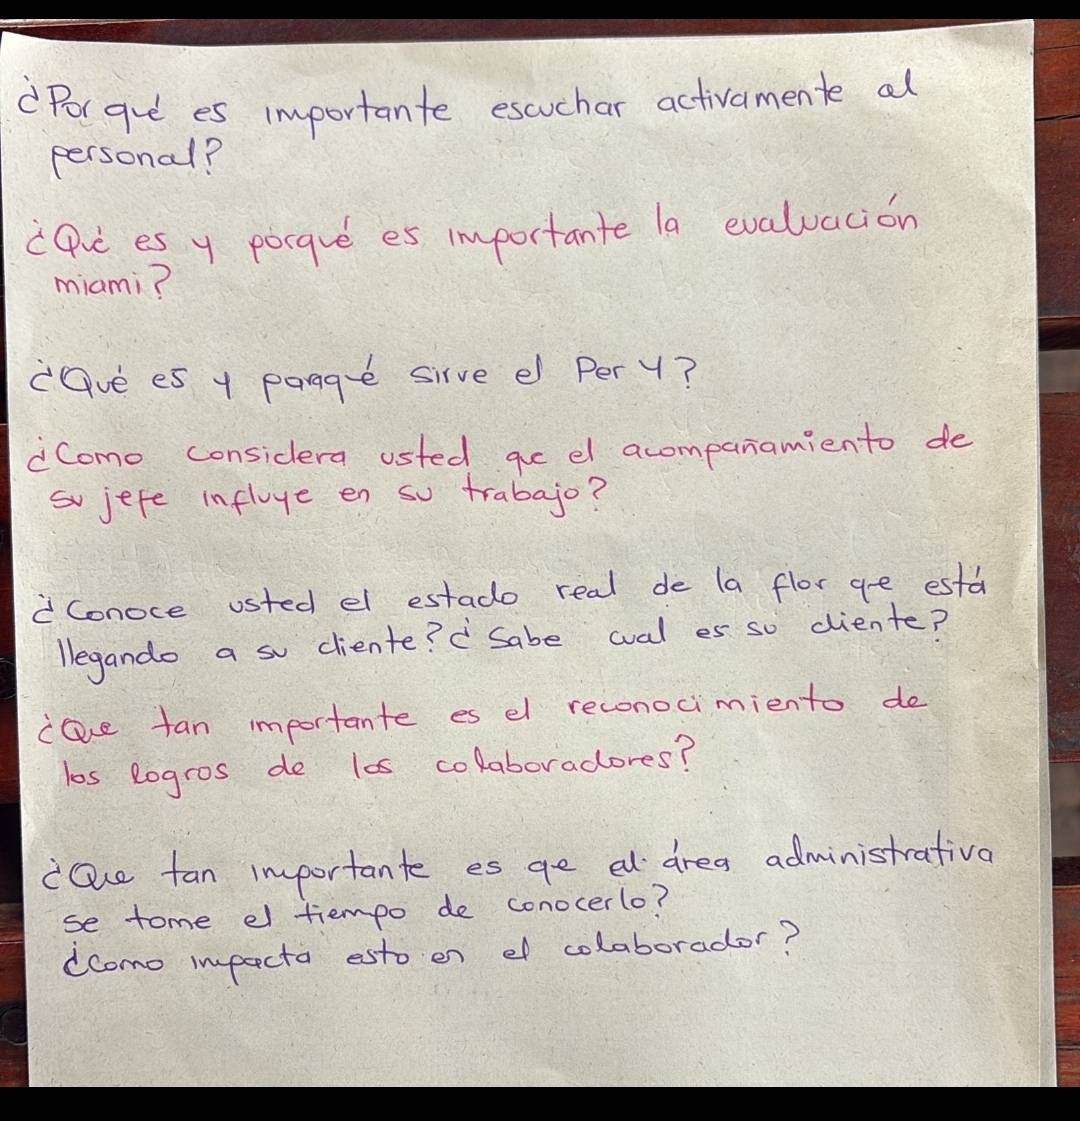 ¿Por qué es importante escuchar activamente al
personal?
¿Qué es y porqué es importante la evaluación
miami?
¿Qué es y paraqué sirve el Per Y?
¿Como considera usted que el acompañamiento de
su jefe influye en su trabajo?
¿Conoce usted el estado real de la flor que está
llegando a su cliente? ¿Sabe cual es su cliente?
¿Que tan importante es el reconocimiento de
los logros de los colaboradores?
¿Que tan importante es que el área administrativa
se tome el tiempo de conocerlo?
¿Como impacta esto en el colaborador?